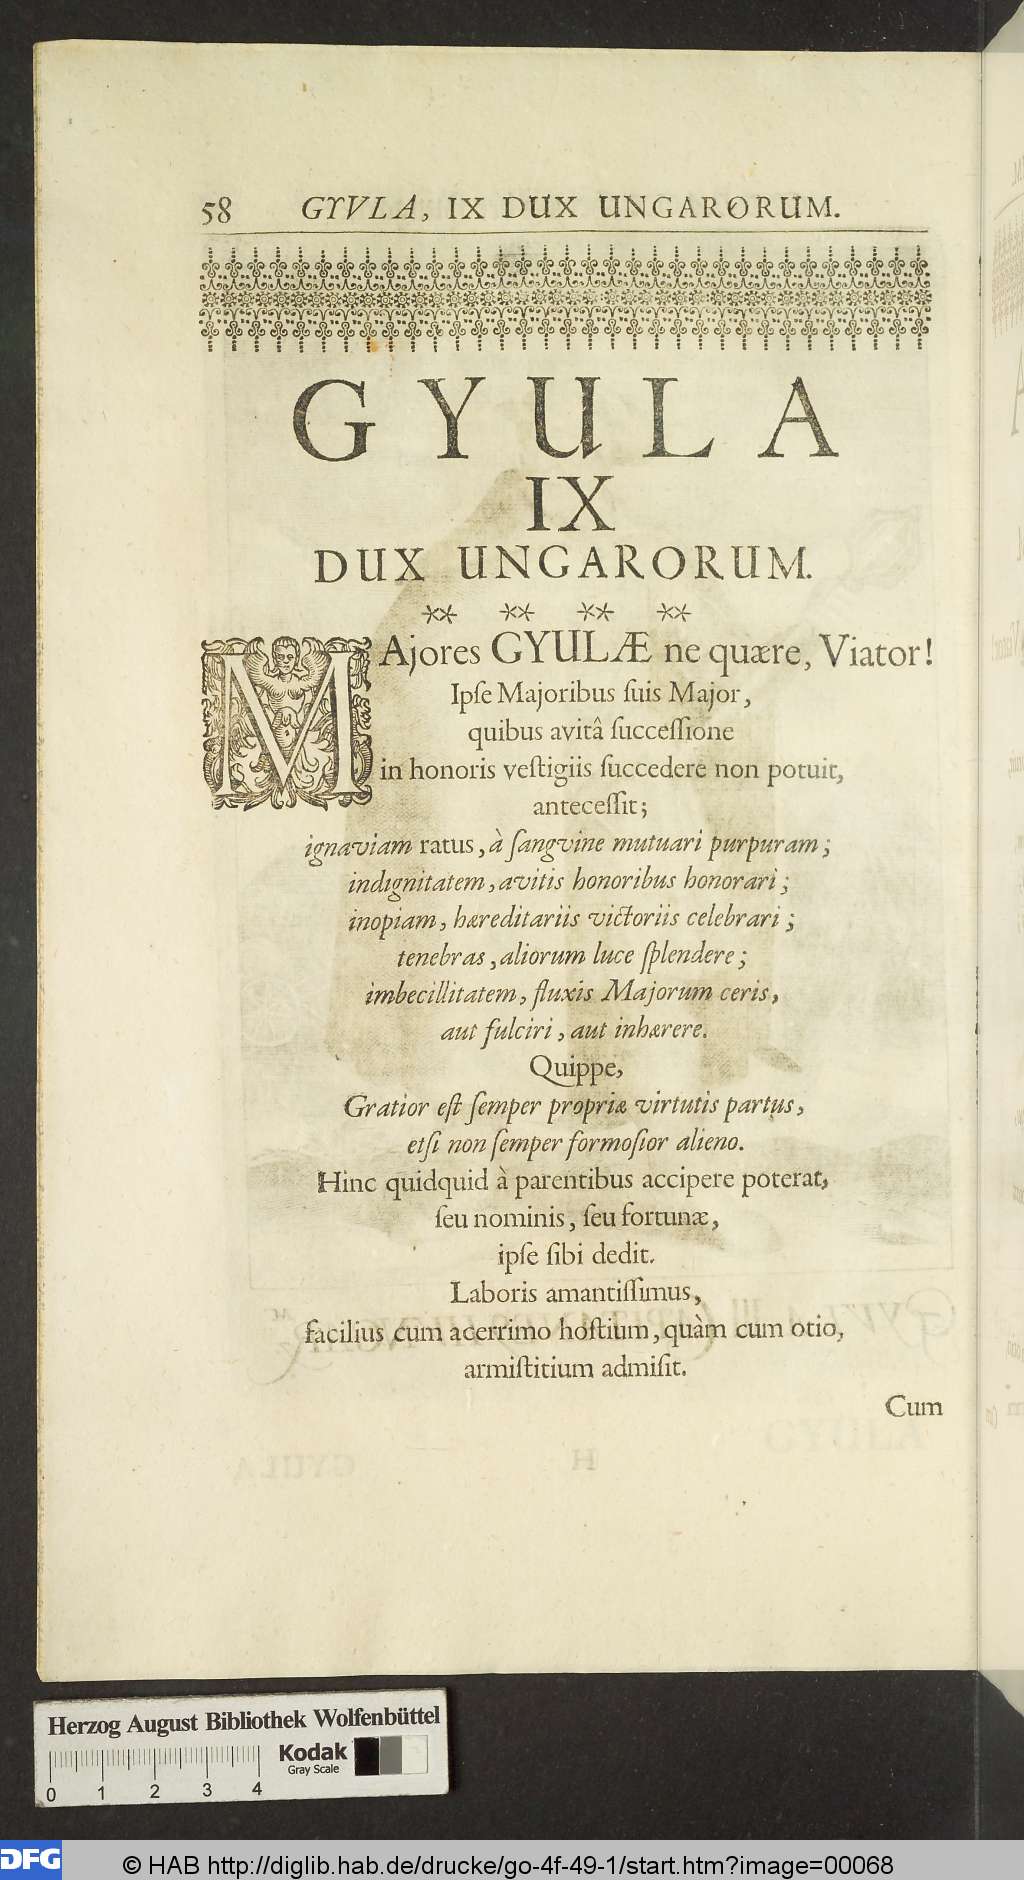 58 GYVLA, IX DUX UNGARORUM.
GYULA
IX
DUX UNGARORUM.
MAjores GYULÆ ne quære, Viator!
Ipſe Majoribus ſuis Major,
quibus avitâ ſucceſſione
in honoris veſtigiis ſuccedere non potuit,
anteceſſit;
ignaviam ratus, à ſangvine mutuari purpuram;
indignitatem, avitis honoribus honorari;
inopiam, hæreditariis victoriis celebrari;
tenebras, aliorum luce ſplendere;
imbecillitatem, fluxis Majorum ceris,
aut fulciri, aut inhærere.
Quippe,
Gratior eſt ſemper propriæ virtutis partus,
etſi non ſemper formoſior alieno.
Hinc quidquid à parentibus accipere poterat,
ſeu nominis, ſeu fortunæ,
ipſe ſibi dedit.
Laboris amantiſſimus,
facilius cum acerrimo hoſtium, quàm cum otio,
armiſtitium admiſit.
Cum
Herzog August Bibliothek Wolfenbüttel
Kodak
Gray Scale
0 1 2 3 4
DFG
© HAB http://diglib.hab.de/drucke/go-4f-49-1/start.htm?image=00068